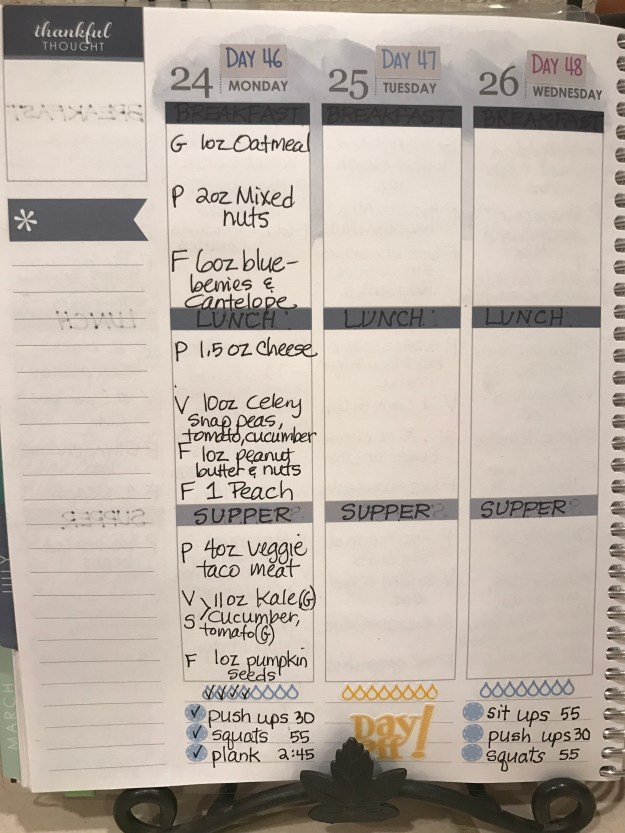 thankful
THOUGHT
24
DAY 46
MONDAY
25
DAY 47
TUESDAY
26
DAY 48
WEDNESDAY
BREAKFAST
BREAKFAST
BREAKFAST
G 1oz Oatmeal
P 2oz Mixed
nuts
F 6oz blue-
berries &
Cantelope
*
LUNCH
LUNCH
LUNCH
P 1.5 oz Cheese
V 10oz Celery
Snap peas,
tomato, cucumber
F 1oz peanut
butter & nuts
F 1 Peach
SUPPER
SUPPER
SUPPER
P 4oz Veggie
taco meat
V 11oz Kale(G)
S Cucumber,
tomato(G)
F 1oz pumpkin
seeds
push ups 30
squats 55
plank 2:45
Day
off!
sit ups 55
push ups 30
squats 55
JULY
MARCH